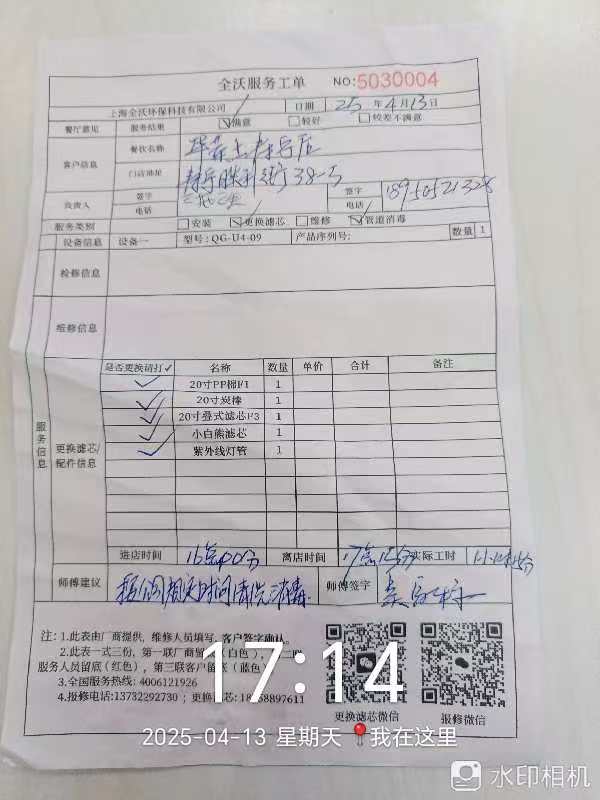 全沃服务工单 NO:5030004
上海全沃环保科技有限公司 日期 25 年 4 月 13 日
餐厅意见 服务结果 满意 较好 较差不满意
客户信息 餐饮名称
门店地址 胜利街38-5
负责人 签字 电话 签字 电话 18950521328
服务类别 安装 更换滤芯 维修 管道消毒
设备信息 设备一 型号: QG-U4-09 产品序列号: 数量 1
检修信息
维修信息
服务信息
更换滤芯/配件信息
是否更换请打✓ 名称 数量 单价 合计 备注
✓ 20寸PP棉F1 1
✓ 20寸炭棒 1
✓ 20寸叠式滤芯F3 1
✓ 小白熊滤芯 1
✓ 紫外线灯管 1
进店时间 16点00分 离店时间 实际工时
师傅建议 师傅签字
注: 1.此表由厂商提供, 维修人员填写, 客户签字确认。
2.此表一式三份, 第一联厂商留 (白色),
服务人员留底 (红色), 第三联客户留底 (蓝色
3.全国服务热线: 4006121926
4.报修电话:13732292730 ; 更换滤芯:
更换滤芯微信 报修微信
17:14
2025-04-13 星期天 我在这里
水印相机